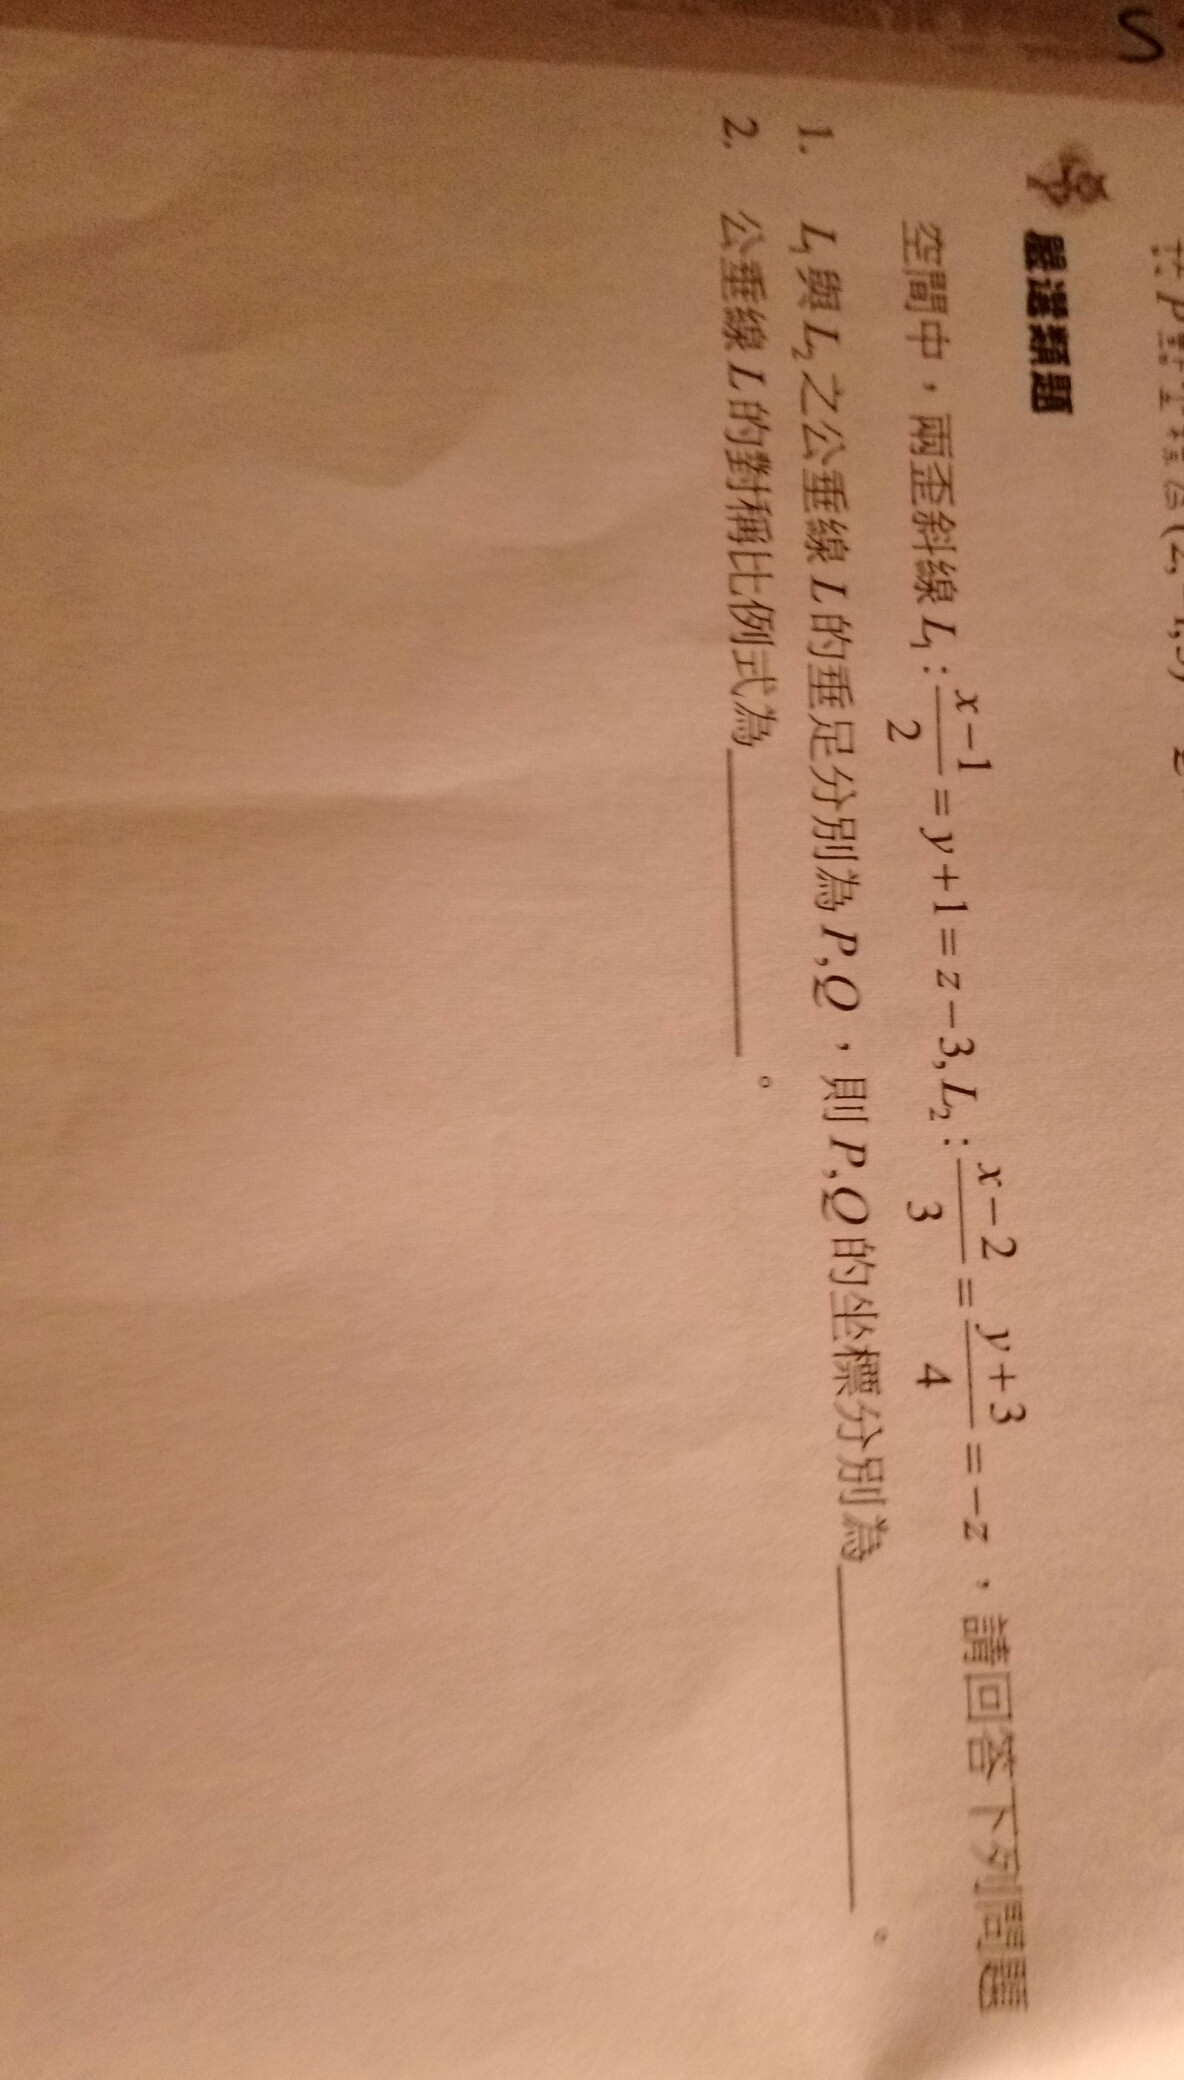 S
嚴選類題
空間中，兩歪斜線 L₁ : \frac{x-1}{2} = y+1 = z-3, L₂ : \frac{x-2}{3} = \frac{y+3}{4} = -z ，請回答下列問題
1. L₁與L₂之公垂線L的垂足分別為P,Q，則P,Q的坐標分別為______。
2. 公垂線L的對稱比例式為______。